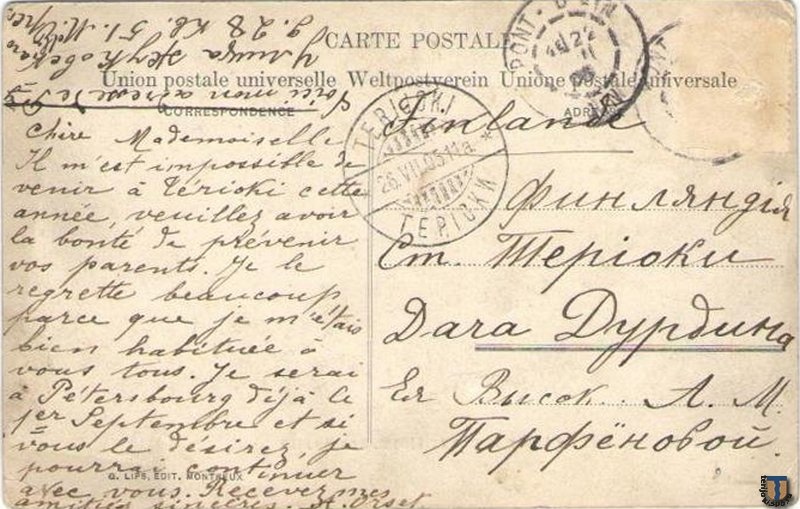 CARTE POSTALE
Union postale universelle Weltpostverein Unione postale universale
CORRESPONDENCE
Chère Mademoiselle
Il m'est impossible de
venir à Térioki cette
année, veuillez avoir
la bonté de prévenir
vos parents. Je le
regrette beaucoup
parce que je m'étais
bien habituée à
vous tous. Je serai
à Pétersbourg déjà le
1er Septembre et si
vous le désirez, je
pourrai continuer
avec vous. Recevez mes
amitiés sincères. A. Orset
Voici mon adresse
д. 28 кв. 51.
G. LIPS, ÉDIT. MONTREUX
TERIJOKI
26.VII.05.11a.
ТЕРІОКИ
PONT
Finlande
Финляндія
Ст. Теріоки
Дача Дурдина
Ея Высок. А. М.
Парфёновой.